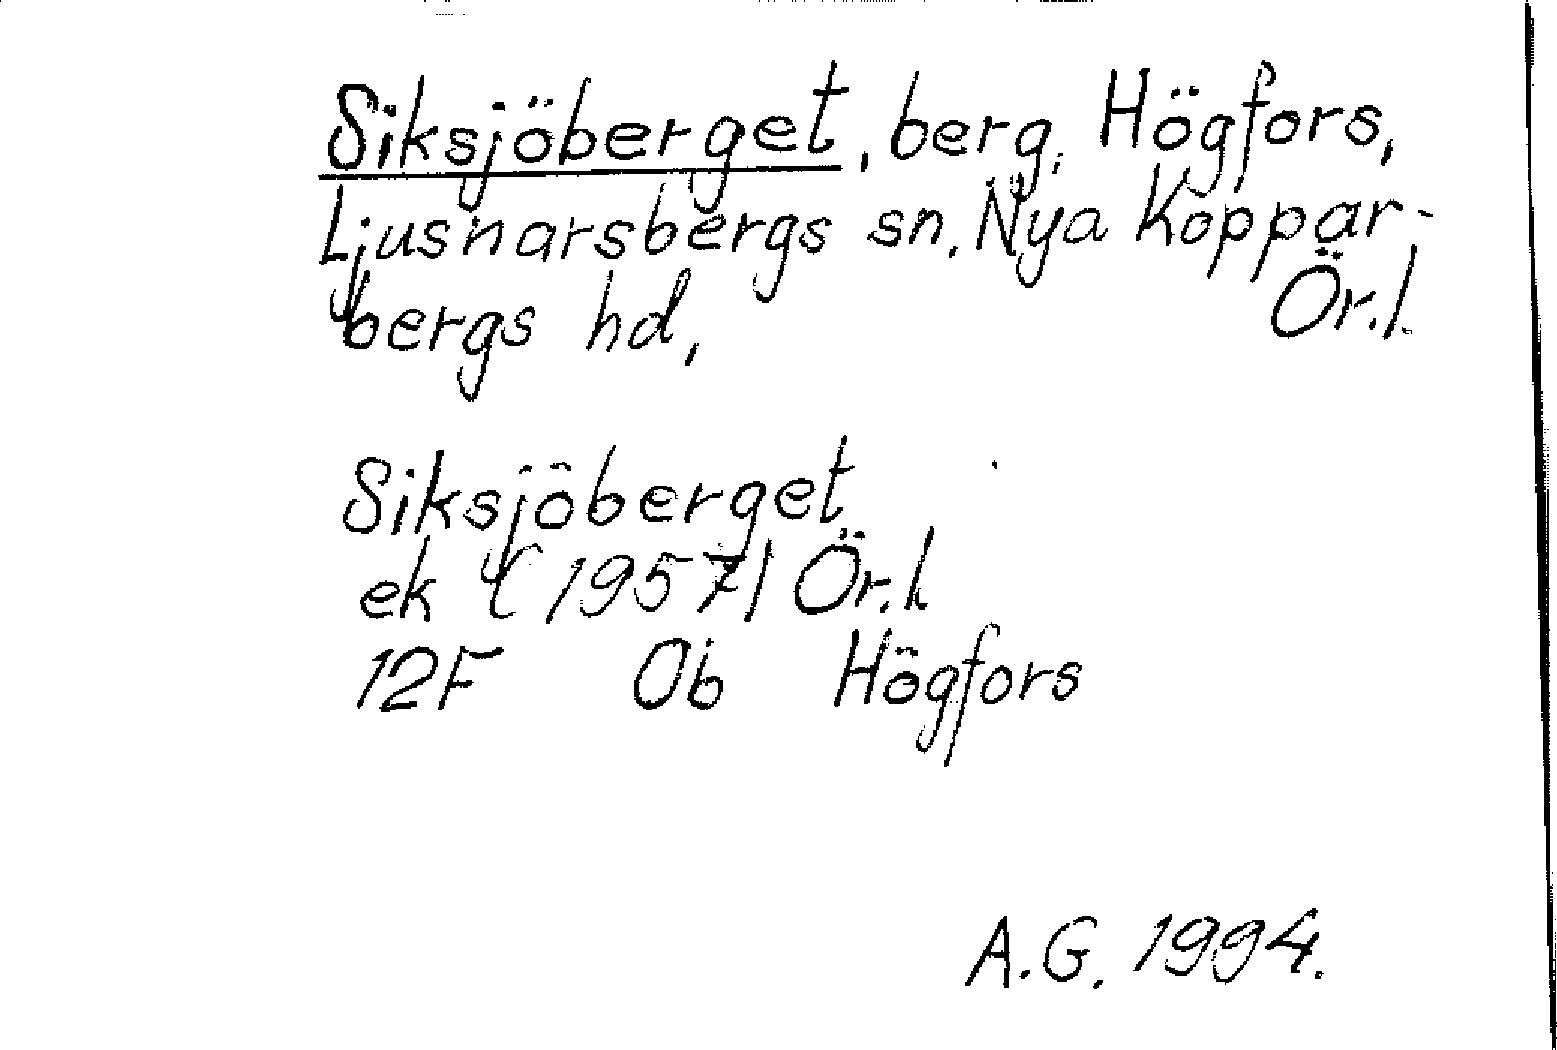 Siksjöberget, berg, Högfors,
Ljusnarsbergs sn, Nya Koppar-
bergs hd, Ör.l.
Siksjöberget
ek (1957) Ör.l.
12F 0b Högfors
A.G. 1994.